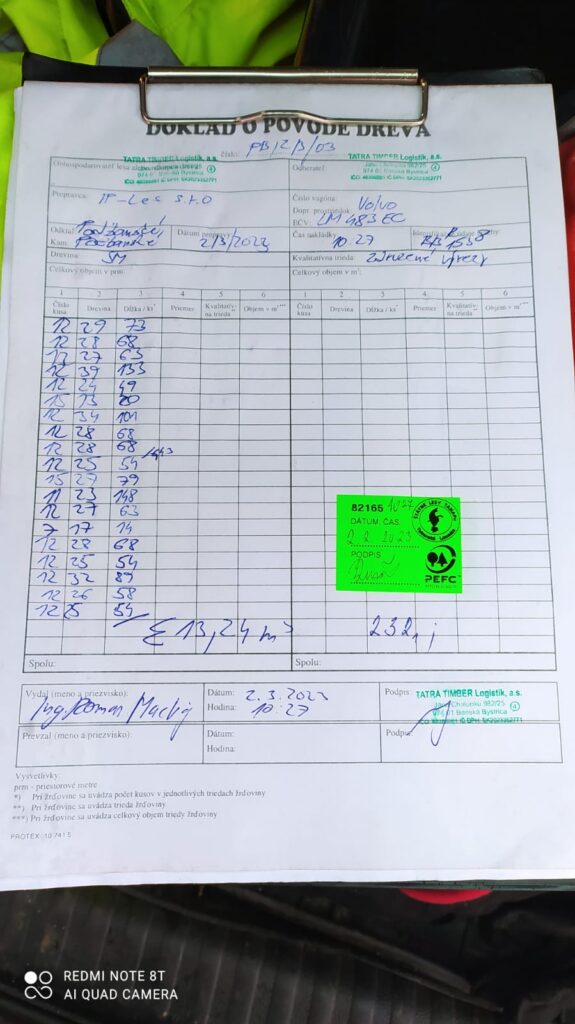 DOKLAD O PÔVODE DREVA
číslo: PB/2/3/03
TATRA TIMBER Logistik, a.s.
974 01 Banská Bystrica
Odberateľ:
TATRA TIMBER Logistik, a.s.
Prepravca: s.r.o
Číslo vagóna: Volvo
Dopr. prostriedok
EČV: LM 483 EC
Odkiaľ:
Kam: Podbanské
Dátum prepravy: 2/3/2023
Čas nakládky: 10:27
Drevina: SM
Kvalitatívna trieda: výrezy
Celkový objem v prm:
Celkový objem v m³:
1 2 3 4 5 6 1 2 3 4 5 6
Číslo kusa Drevina Dĺžka / ks* Priemer Kvalitatív-na trieda** Objem v m³*** Číslo kusa Drevina Dĺžka / ks* Priemer Kvalitatív-na trieda** Objem v m³***
12 29 73
12 28 68
12 27 63
12 39 133
12 24 49
15 13 20
12 34 101
12 28 68
12 28 68
12 25 54
15 29 79
11 23 148
12 27 63
7 17 14
12 28 68
12 25 54
12 32 89
12 26 58
12 25 54
Σ 13,24 m³
232,
82165
DÁTUM ČAS
2 2023
PODPIS
ŠTÁTNE LESY TANAPU
PEFC
Spolu:
Spolu:
Vydal (meno a priezvisko):
Ing. Roman
Dátum: 2.3.2023
Hodina: 10:27
Podpis:
TATRA TIMBER Logistik, a.s.
Jána Chalupku 982/25
974 01 Banská Bystrica
Prevzal (meno a priezvisko):
Dátum:
Hodina:
Podpis:
Vysvetlivky:
prm - priestorové metre
*) Pri žrďovine sa uvádza počet kusov v jednotlivých triedach žrďoviny
**) Pri žrďovine sa uvádza trieda žrďoviny
***) Pri žrďovine sa uvádza celkový objem triedy žrďoviny
PROTEX 10 741 5
REDMI NOTE 8T
AI QUAD CAMERA